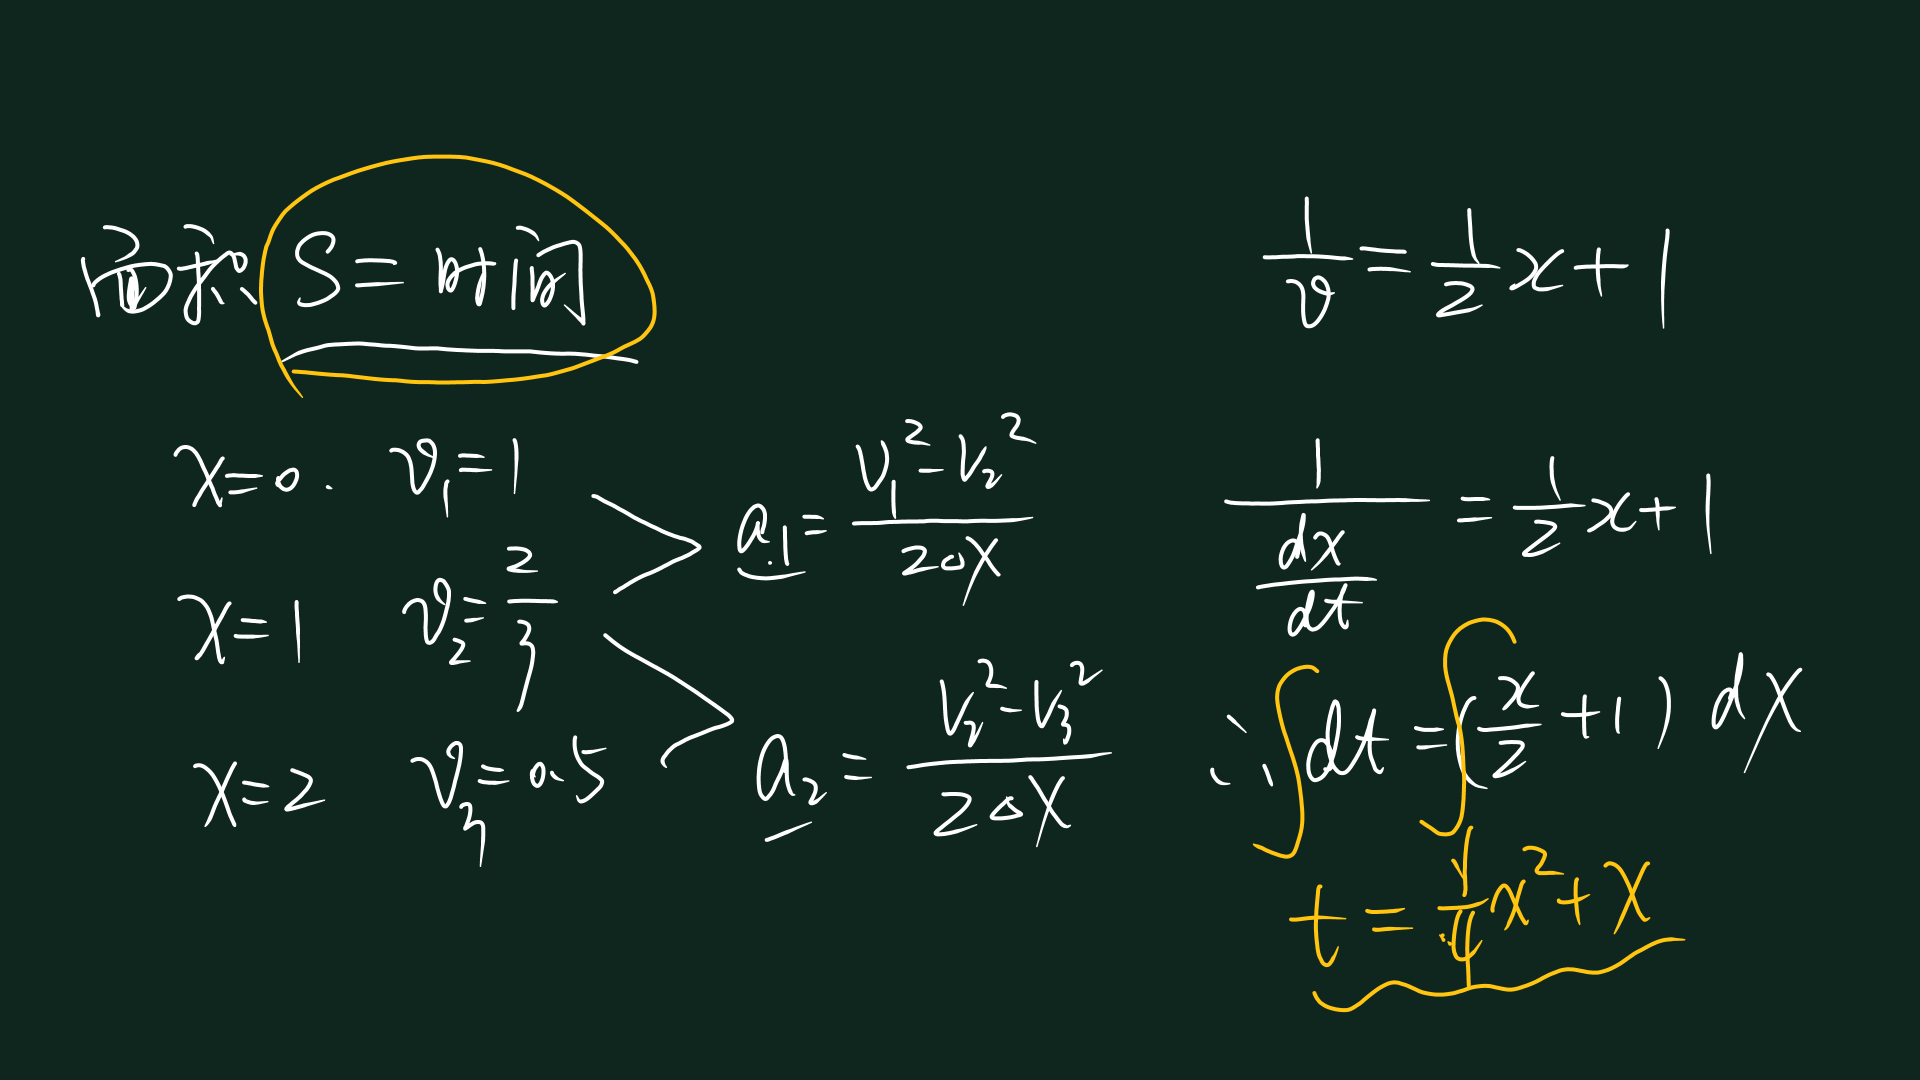 面积 S=时间
x=0. v₁=1
x=1 v₂=2/3
x=2 v₃=0.5
a₁=(v₁²-v₂²)/(2△x)
a₂=(v₂²-v₃²)/(2△x)
1/v=1/2x+1
1/(dx/dt)=1/2x+1
∴∫dt=∫(x/2+1)dx
t=1/4x²+x